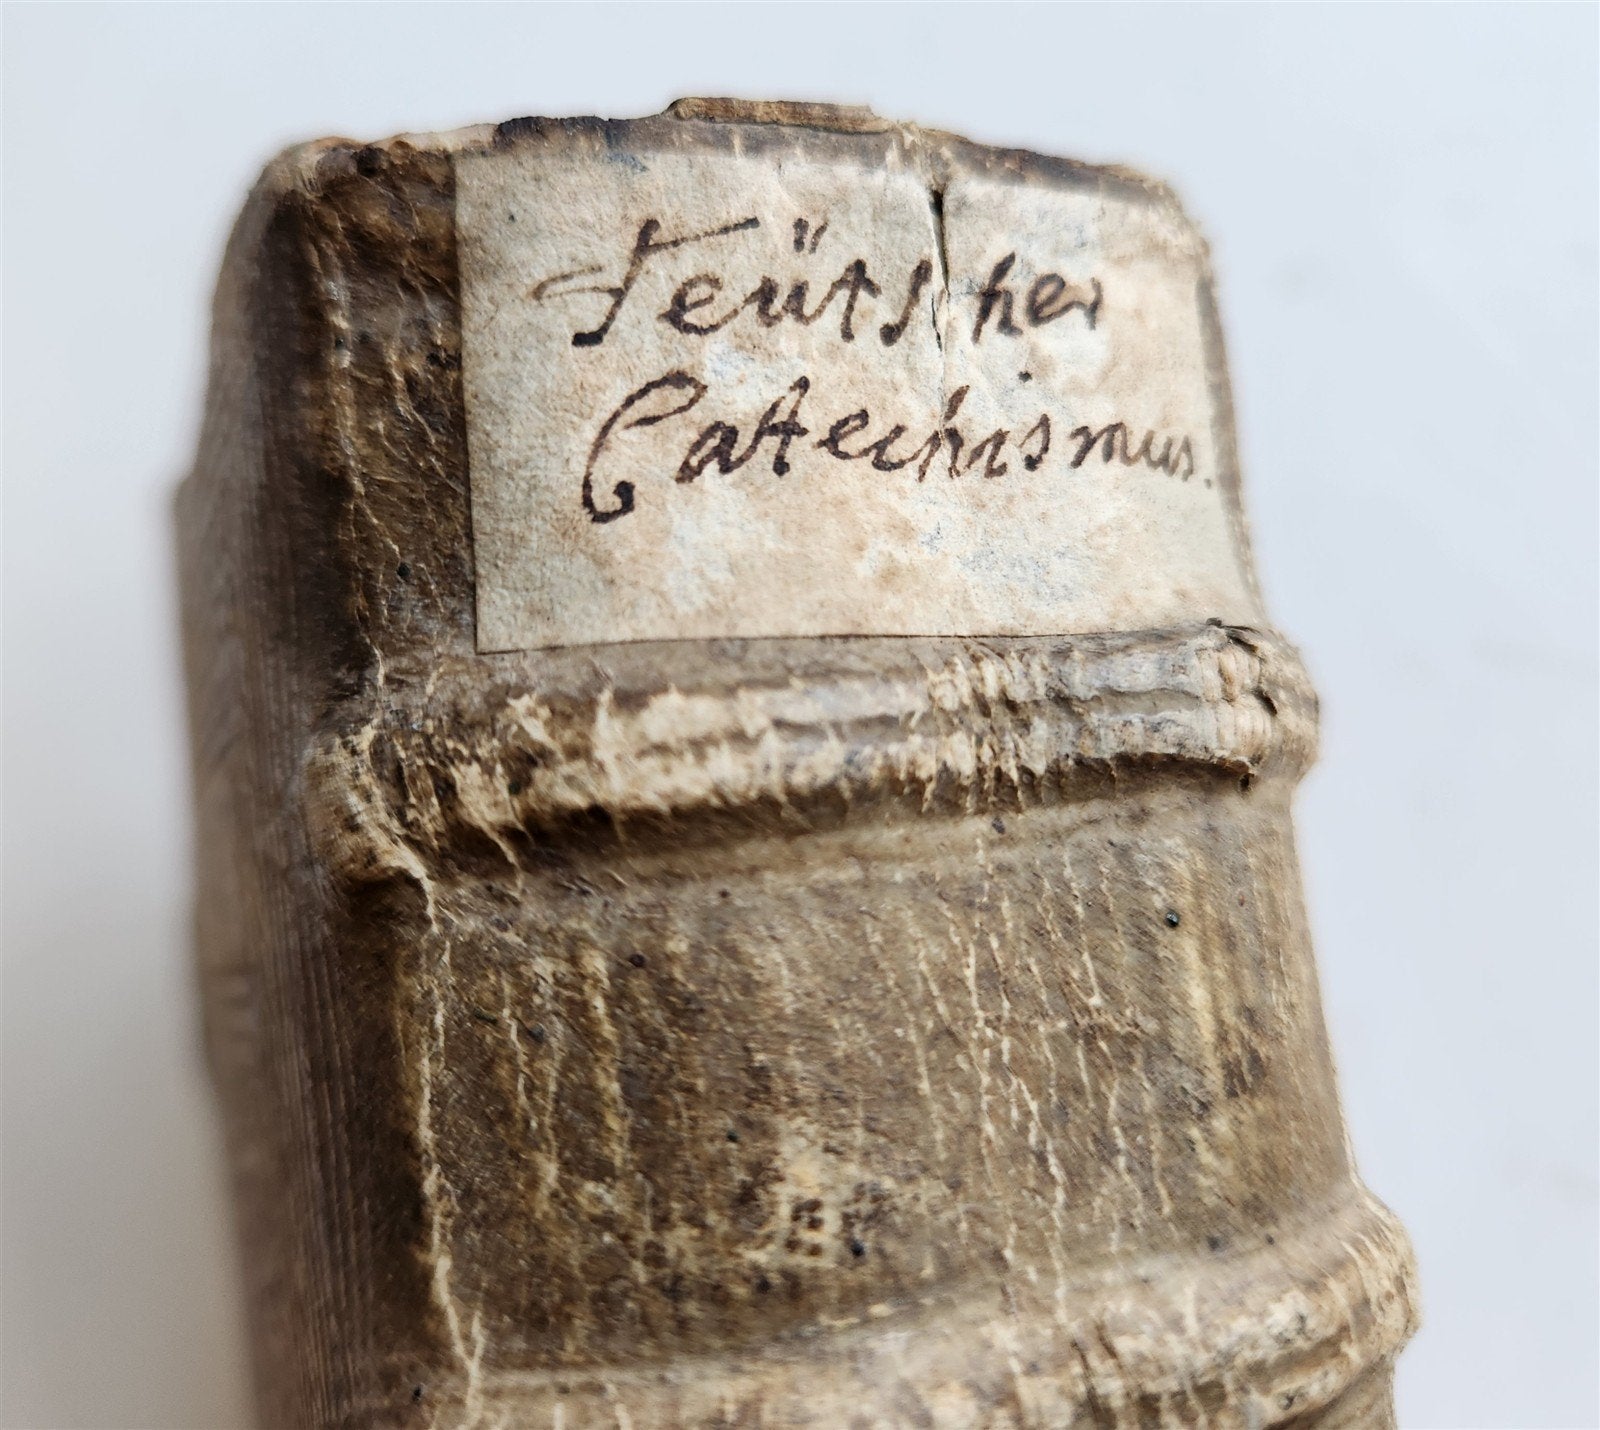 Teütscher
Catechismus.